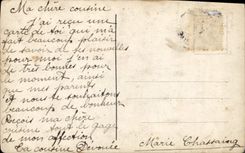 Ma chère cousine
J'ai reçu une
carte de toi qui m'a
fait beaucoup plaisir
de savoir de tes nouvelles
pour moi j'en ai
de très bonnes pour
le moment ainsi
que mes parents
et nous te souhaitons
beaucoup de bonheur
Reçois ma chère
cousine
de mon affection
Ta cousine
Marie Chassaing